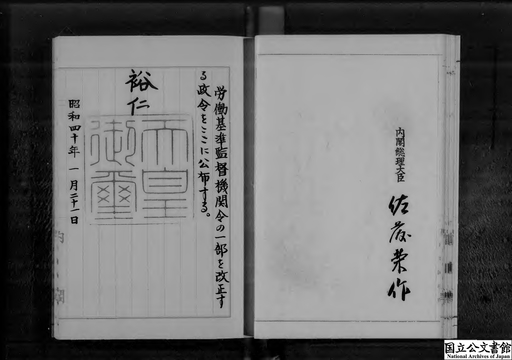 労働基準監督機関令の一部を改正す
る政令をここに公布する。
裕仁
天皇
御璽
昭和四十年一月二十一日
内閣総理大臣
佐藤榮作
国立公文書館
National Archives of Japan